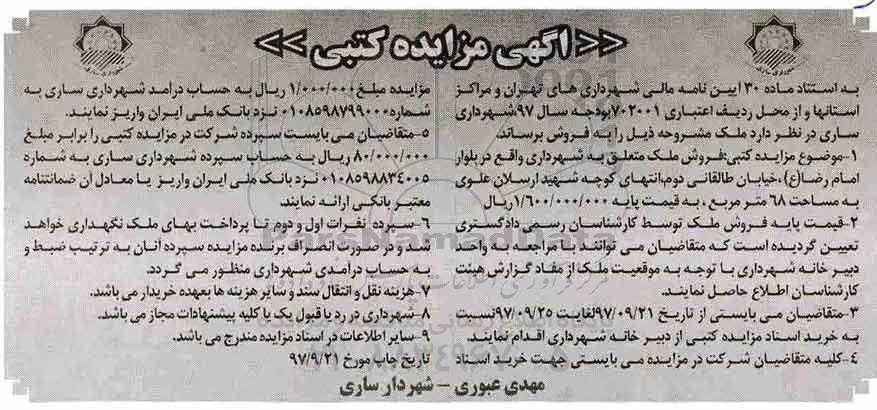 <<آگهی مزایده کتبی>>
به استناد ماده ۳۰ ایین نامه مالی شهرداری های تهران و مراکز
استانها و از محل ردیف اعتباری ۷۰۲۰۰۱بودجه سال ۹۷،شهرداری
ساری در نظر دارد ملک مشروحه ذیل را به فروش برساند.
۱-موضوع مزایده کتبی:فروش ملک متعلق به شهرداری واقع در بلوار
امام رضا(ع)،خیابان طالقانی دوم،انتهای کوچه شهید ارسلان علوی
به مساحت ۶۸ متر مربع ، به قیمت پایه ۱/۶۰۰/۰۰۰/۰۰۰ریال
۲-قیمت پایه فروش ملک توسط کارشناسان رسمی دادگستری
تعیین گردیده است که متقاضیان می توانند با مراجعه به واحد
دبیر خانه شهرداری با توجه به موقعیت ملک از مفاد گزارش هیئت
کارشناسان اطلاع حاصل نمایند.
۳-متقاضیان می بایستی از تاریخ ۹۷/۰۹/۲۱لغایت ۹۷/۰۹/۲۵نسبت
به خرید اسناد مزایده کتبی از دبیر خانه شهرداری اقدام نمایند.
۴-کلیه متقاضیان شرکت در مزایده می بایستی جهت خرید اسناد
مزایده مبلغ ۱/۰۰۰/۰۰۰ ریال به حساب درامد شهرداری ساری به
شماره۰۱۰۸۵۹۸۷۹۹۰۰۰ نزد بانک ملی ایران واریز نمایند.
۵-متقاضیان می بایست سپرده شرکت در مزایده کتبی را برابر مبلغ
۸۰/۰۰۰/۰۰۰ ریال به حساب سپرده شهرداری ساری به شماره
۰۱۰۸۵۹۸۸۳۴۰۰۵ نزد بانک ملی ایران واریز یا معادل آن ضمانتنامه
معتبر بانکی ارائه نمایند
۶-سپرده نفرات اول و دوم تا پرداخت بهای ملک نگهداری خواهد
شد و در صورت انصراف برنده مزایده سپرده آنان به ترتیب ضبط و
به حساب درآمدی شهرداری منظور می گردد.
۷-هزینه نقل و انتقال سند و سایر هزینه ها بعهده خریدار می باشد.
۸-شهرداری در رد یا قبول یک یا کلیه پیشنهادات مجاز می باشد.
۹-سایر اطلاعات در اسناد مزایده مندرج می باشد.
تاریخ چاپ مورخ ۹۷/۹/۲۱
مهدی عبوری – شهردار ساری